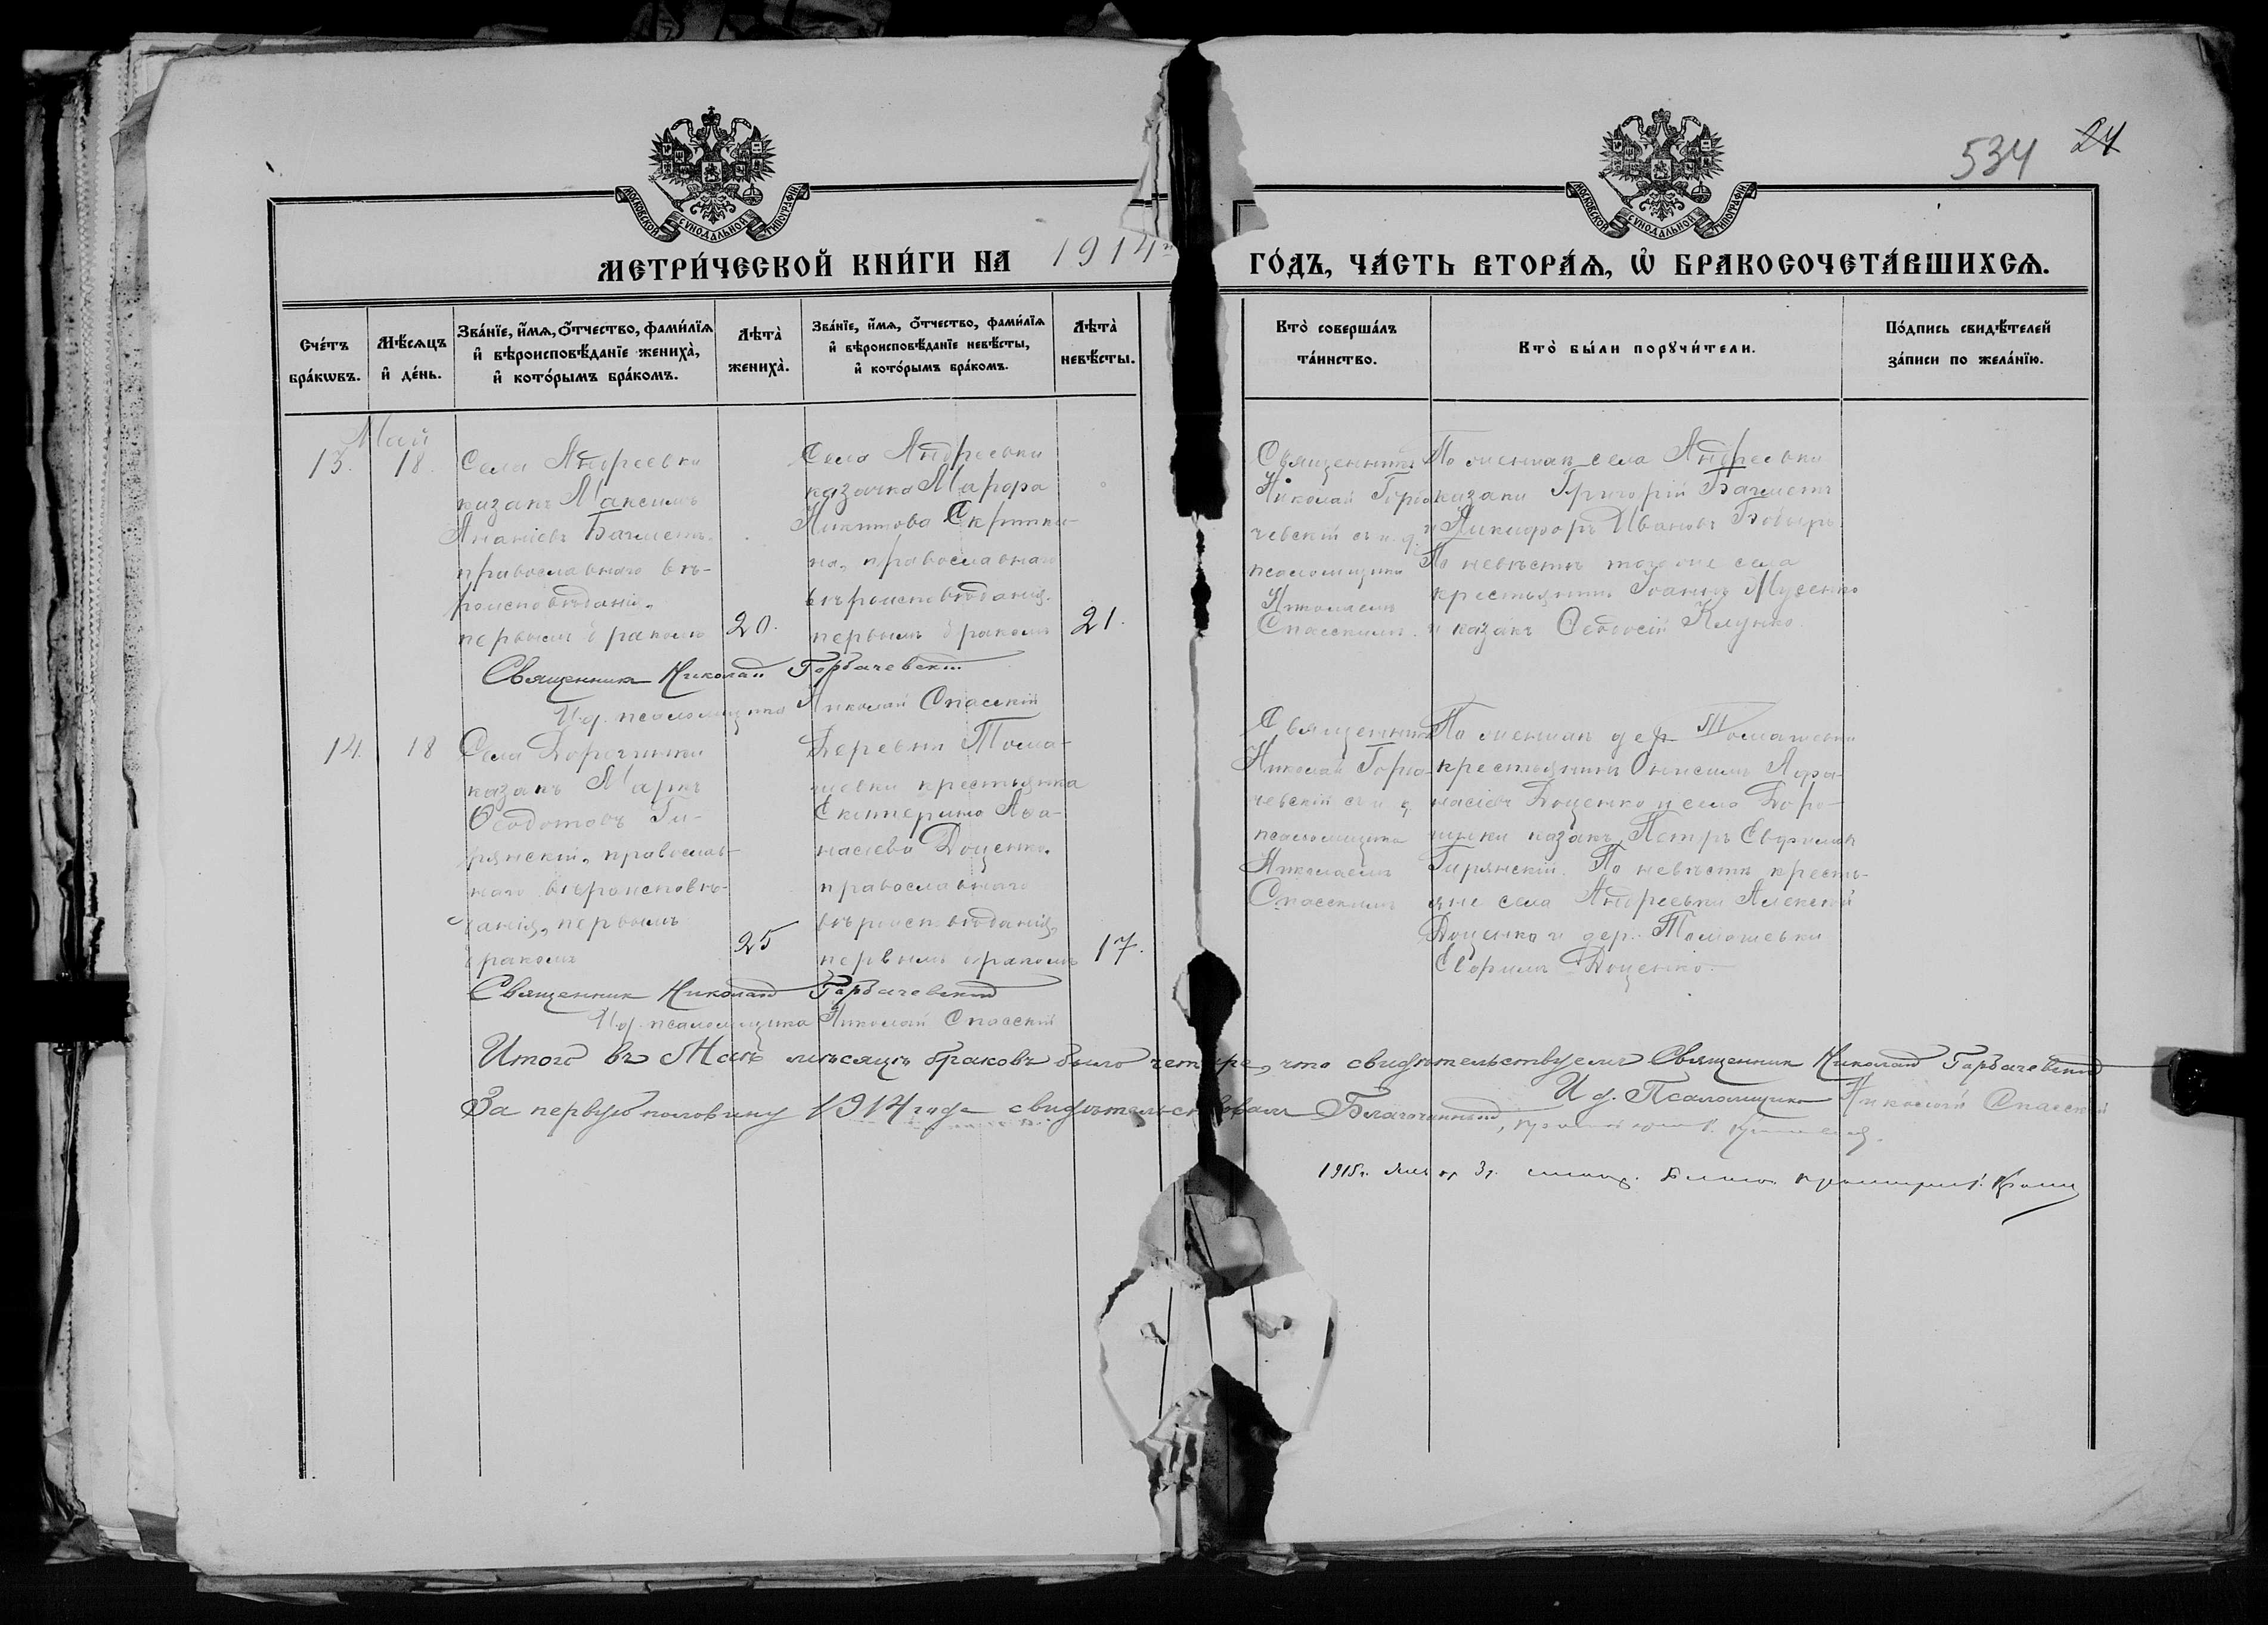 534 24
МОСКОВСКОЙ СѴНОДАЛЬНОЙ ТИПОГРАФІИ
МОСКОВСКОЙ СѴНОДАЛЬНОЙ ТИПОГРАФІИ
МЕТРИ́ЧЕСКОЙ КНИ́ГИ НА 1914й ГО́ДЪ, ЧА́СТЬ ВТОРА́Ѧ, Ѡ҆ БРАКОСОЧЕТА́ВШИХСѦ.
Сче́тъ
бра́кѡвъ.
Мѣ́сѧцъ
и҆ де́нь.
Зва́нїе, и҆́мѧ, ѻ҆́тчество, фами́лїѧ
и҆ вѣроисповѣ́данїе жениха̀,
и҆ кото́рымъ бра́комъ.
Лѣта̀
жениха̀.
Зва́нїе, и҆́мѧ, ѻ҆́тчество, фами́лїѧ
и҆ вѣроисповѣ́данїе невѣ́сты,
и҆ кото́рымъ бра́комъ.
Лѣта̀
невѣ́сты.
Кто̀ соверша́лъ
та́инство.
Кто̀ бы́ли порꙋчи́тели.
По́дпись свидѣ́телей
за́писи по жела́нїю.
Май
13. 18.
Села Андреевки
казакъ Максимъ
Ананіевъ
православнаго вѣ-
роисповѣданія,
первымъ бракомъ
20.
Села Андреевки
казачка Мавра
Никитова Скрипки-
на, православнаго
вѣроисповѣданія,
первымъ бракомъ
21.
Священникъ
Николай Горба-
чевскій съ и. д.
псаломщика
Николаемъ
Спасскимъ.
По женихѣ села Андреевки
казаки Григорій
и Никифоръ Ивановъ Бобырь.
По невѣстѣ того же села
крестьянинъ Іоаннъ Мусенко
и казакъ Ѳеодосій
Священникъ Николай Горбачевскій
И. д. псаломщика Николай Спасскій
14. 18
Села Дорогинки
казакъ Маркъ
Ѳеодотовъ Ги-
рянскій, православ-
наго вѣроисповѣ-
данія, первымъ
бракомъ
25
Деревни Тома-
шевки крестьянка
Екатерина Аѳа-
насіева Доценко,
православнаго
вѣроисповѣданія,
первымъ бракомъ
17.
Священникъ
Николай Горба-
чевскій съ и. д.
псаломщика
Николаемъ
Спасскимъ
По женихѣ дер. Томашевки
крестьянинъ Онисимъ Аѳа-
насіевъ Доценко и села Доро-
гинки казакъ Петръ Евфиміевъ
Гирянскій. По невѣстѣ кресть-
яне села Андреевки Алексѣй
Доценко и дер. Томашевки
Евфимъ Доценко.
Священникъ Николай Горбачевскій
И. д. псаломщика Николай Спасскій
Итого въ Маѣ мѣсяцѣ браковъ было четыре, что свидѣтельствуемъ Священникъ Николай Горбачевскій
И. д. Псаломщика Николай Спасскій
За первую половину 1914 года свидѣтельствовалъ Благочинный,
1915 г.